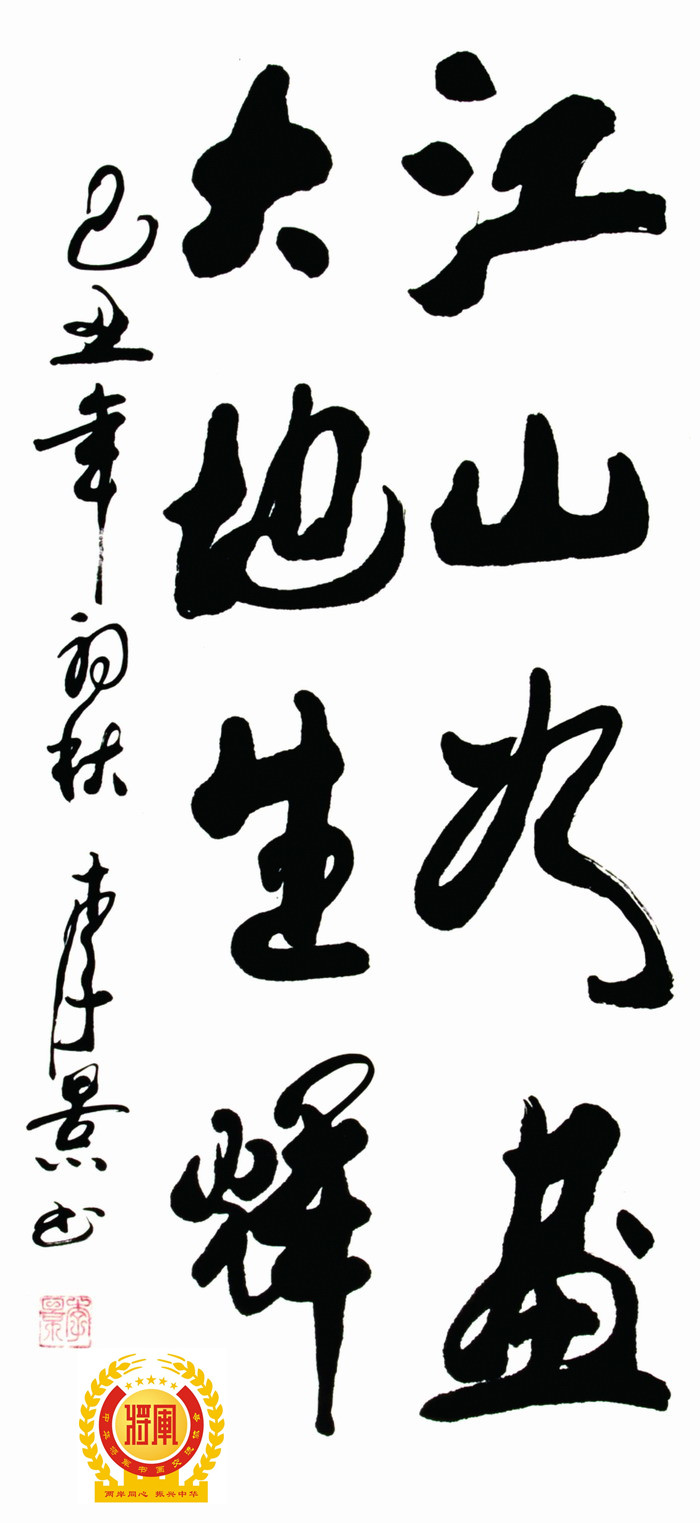 江山如畫
大地生輝
己丑年初秋 李景书
李景
将軍
两岸同心 振兴中华